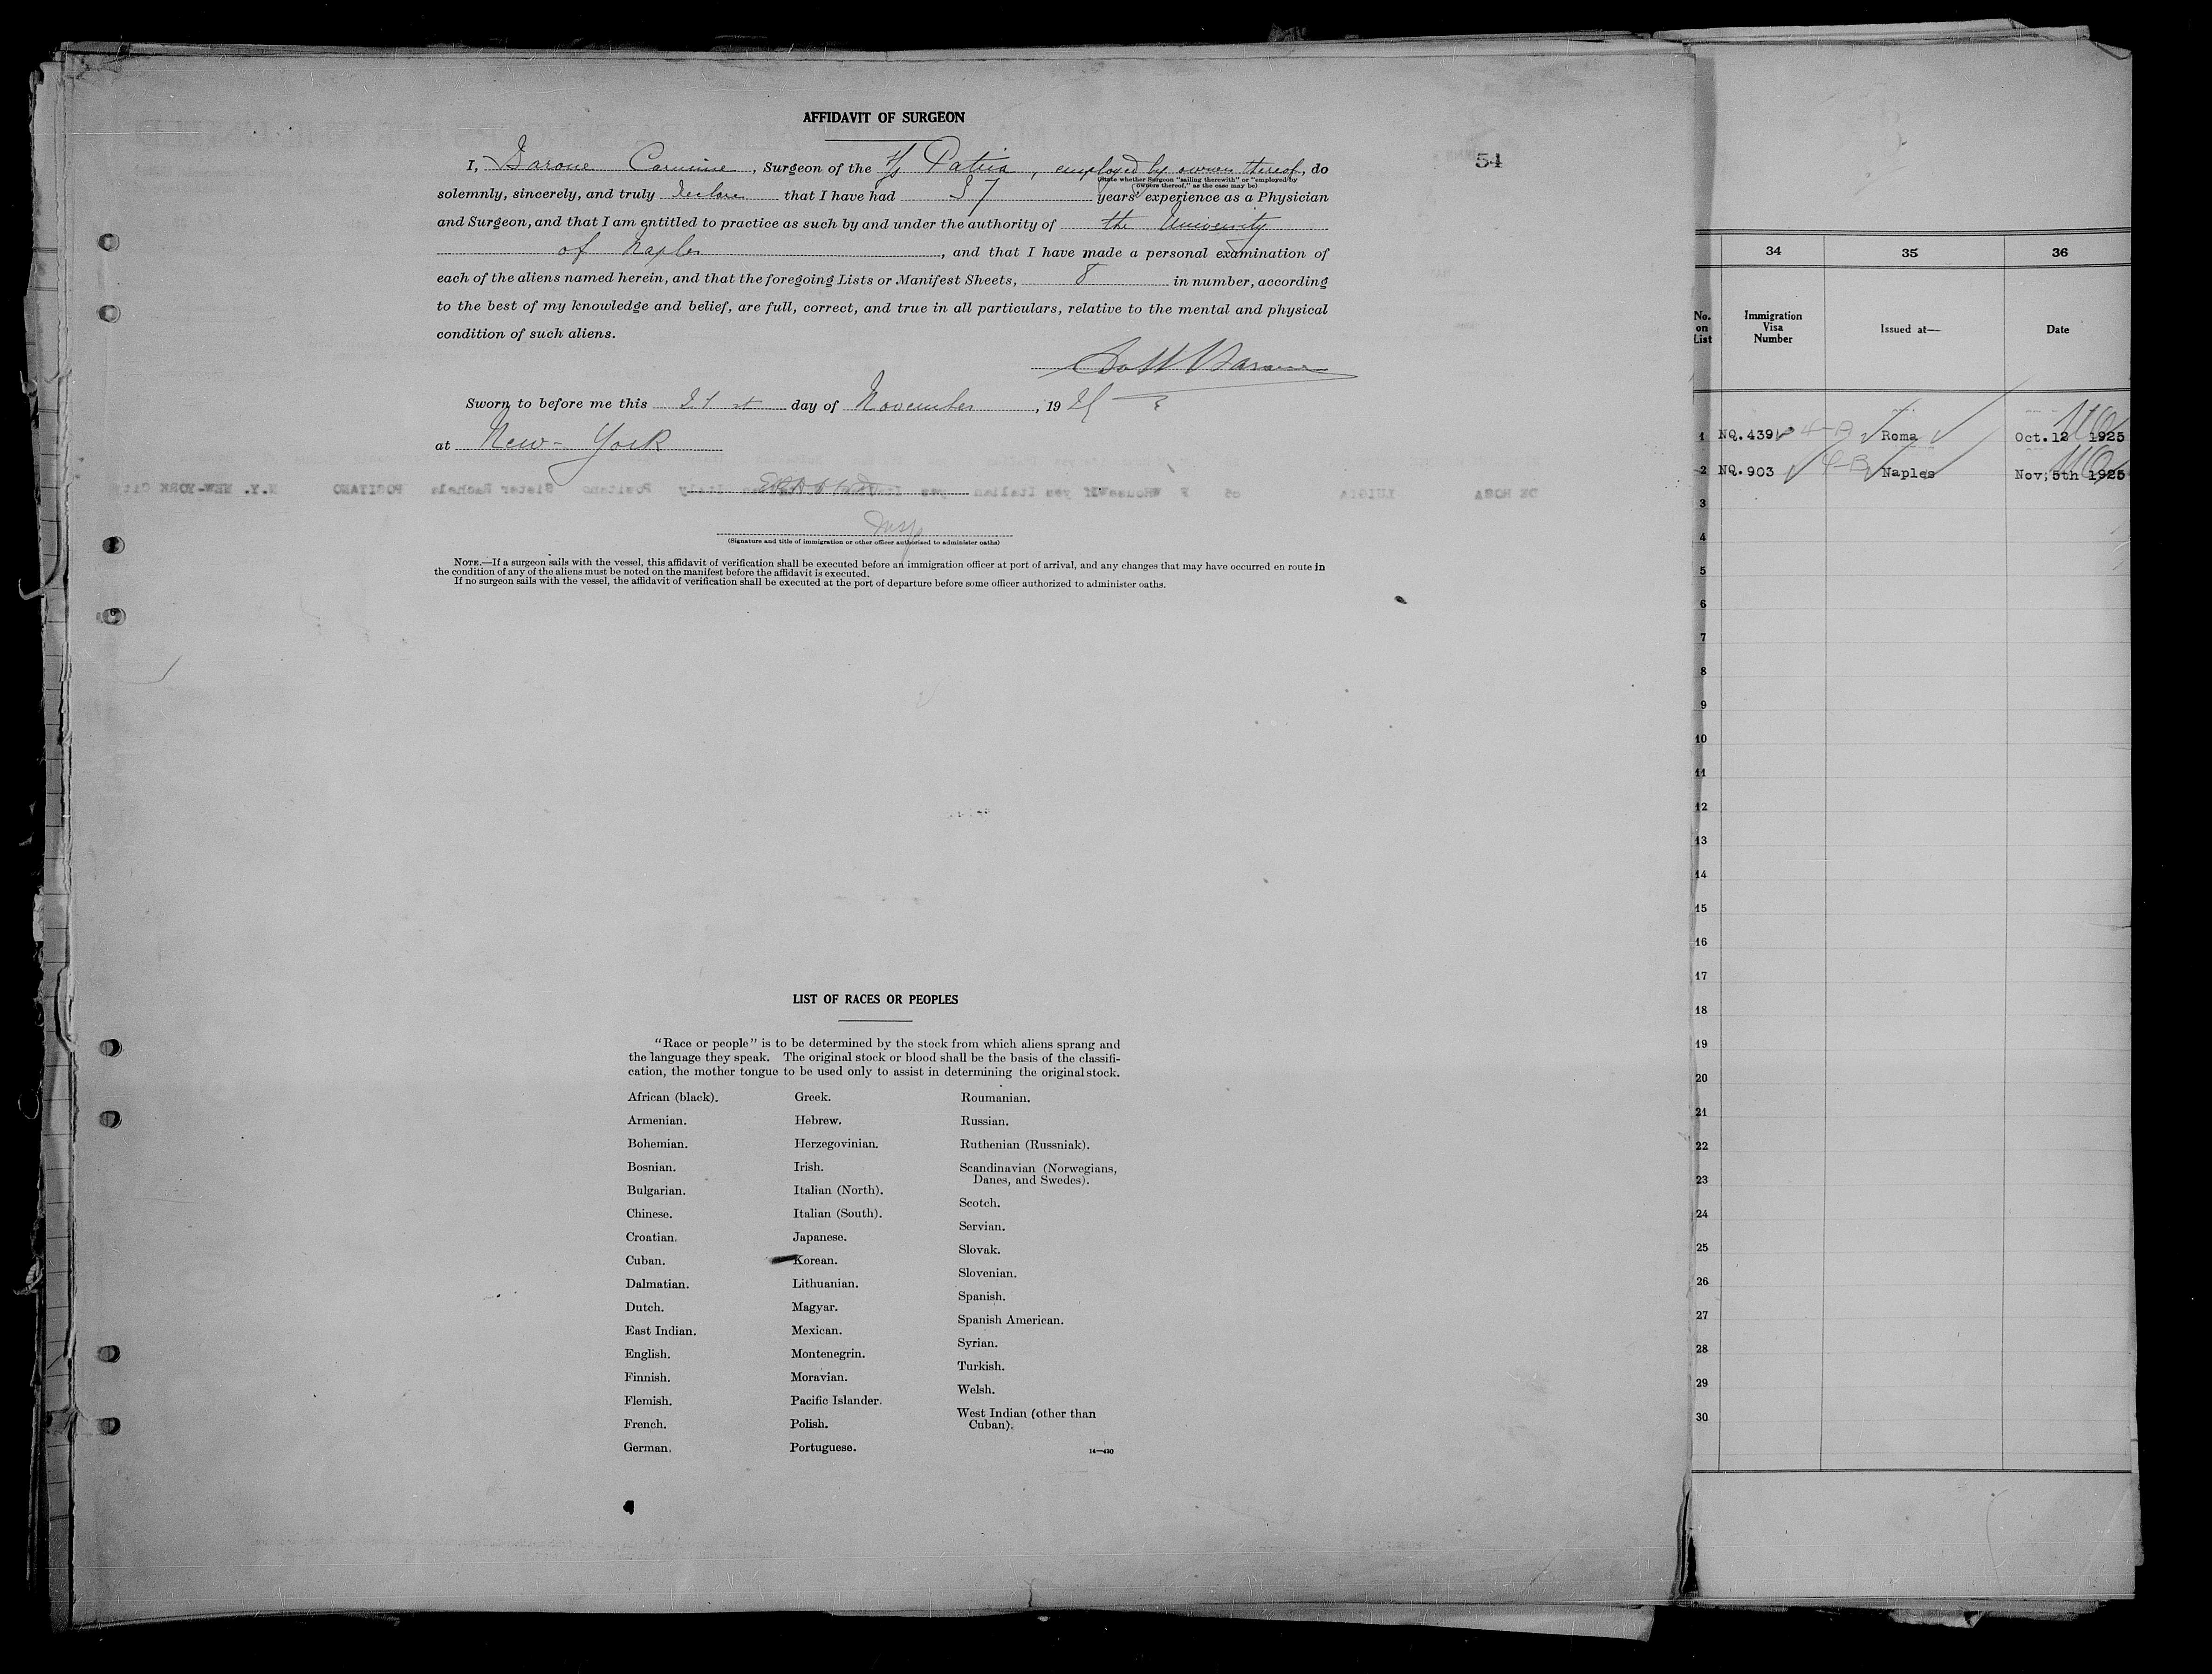 AFFIDAVIT OF SURGEON
54
I, Barone Carmine, Surgeon of the S/S Patria, employed by owners thereof, do
(State whether Surgeon "sailing therewith" or "employed by
owners thereof," as the case may be)
solemnly, sincerely, and truly declare that I have had 37 years' experience as a Physician
and Surgeon, and that I am entitled to practice as such by and under the authority of the University
of Naples, and that I have made a personal examination of
each of the aliens named herein, and that the foregoing Lists or Manifest Sheets, 8 in number, according
to the best of my knowledge and belief, are full, correct, and true in all particulars, relative to the mental and physical
condition of such aliens.
Dott Barone
Sworn to before me this 21 st day of November, 19 25
at New-York
Insp
(Signature and title of immigration or other officer authorized to administer oaths)
NOTE.—If a surgeon sails with the vessel, this affidavit of verification shall be executed before an immigration officer at port of arrival, and any changes that may have occurred en route in
the condition of any of the aliens must be noted on the manifest before the affidavit is executed.
If no surgeon sails with the vessel, the affidavit of verification shall be executed at the port of departure before some officer authorized to administer oaths.
LIST OF RACES OR PEOPLES
"Race or people" is to be determined by the stock from which aliens sprang and
the language they speak. The original stock or blood shall be the basis of the classifi-
cation, the mother tongue to be used only to assist in determining the original stock.
African (black).
Armenian.
Bohemian.
Bosnian.
Bulgarian.
Chinese.
Croatian.
Cuban.
Dalmatian.
Dutch.
East Indian.
English.
Finnish.
Flemish.
French.
German.
Greek.
Hebrew.
Herzegovinian.
Irish.
Italian (North).
Italian (South).
Japanese.
Korean.
Lithuanian.
Magyar.
Mexican.
Montenegrin.
Moravian.
Pacific Islander.
Polish.
Portuguese.
Roumanian.
Russian.
Ruthenian (Russniak).
Scandinavian (Norwegians,
Danes, and Swedes).
Scotch.
Servian.
Slovak.
Slovenian.
Spanish.
Spanish American.
Syrian.
Turkish.
Welsh.
West Indian (other than
Cuban).
14—430
34 35 36
No.
on
List
Immigration
Visa
Number
Issued at—
Date
1 NQ.439 4-B Roma Oct.12 1925
2 NQ.903 4-B Naples Nov,5th 1925
3
4
5
6
7
8
9
10
11
12
13
14
15
16
17
18
19
20
21
22
23
24
25
26
27
28
29
30